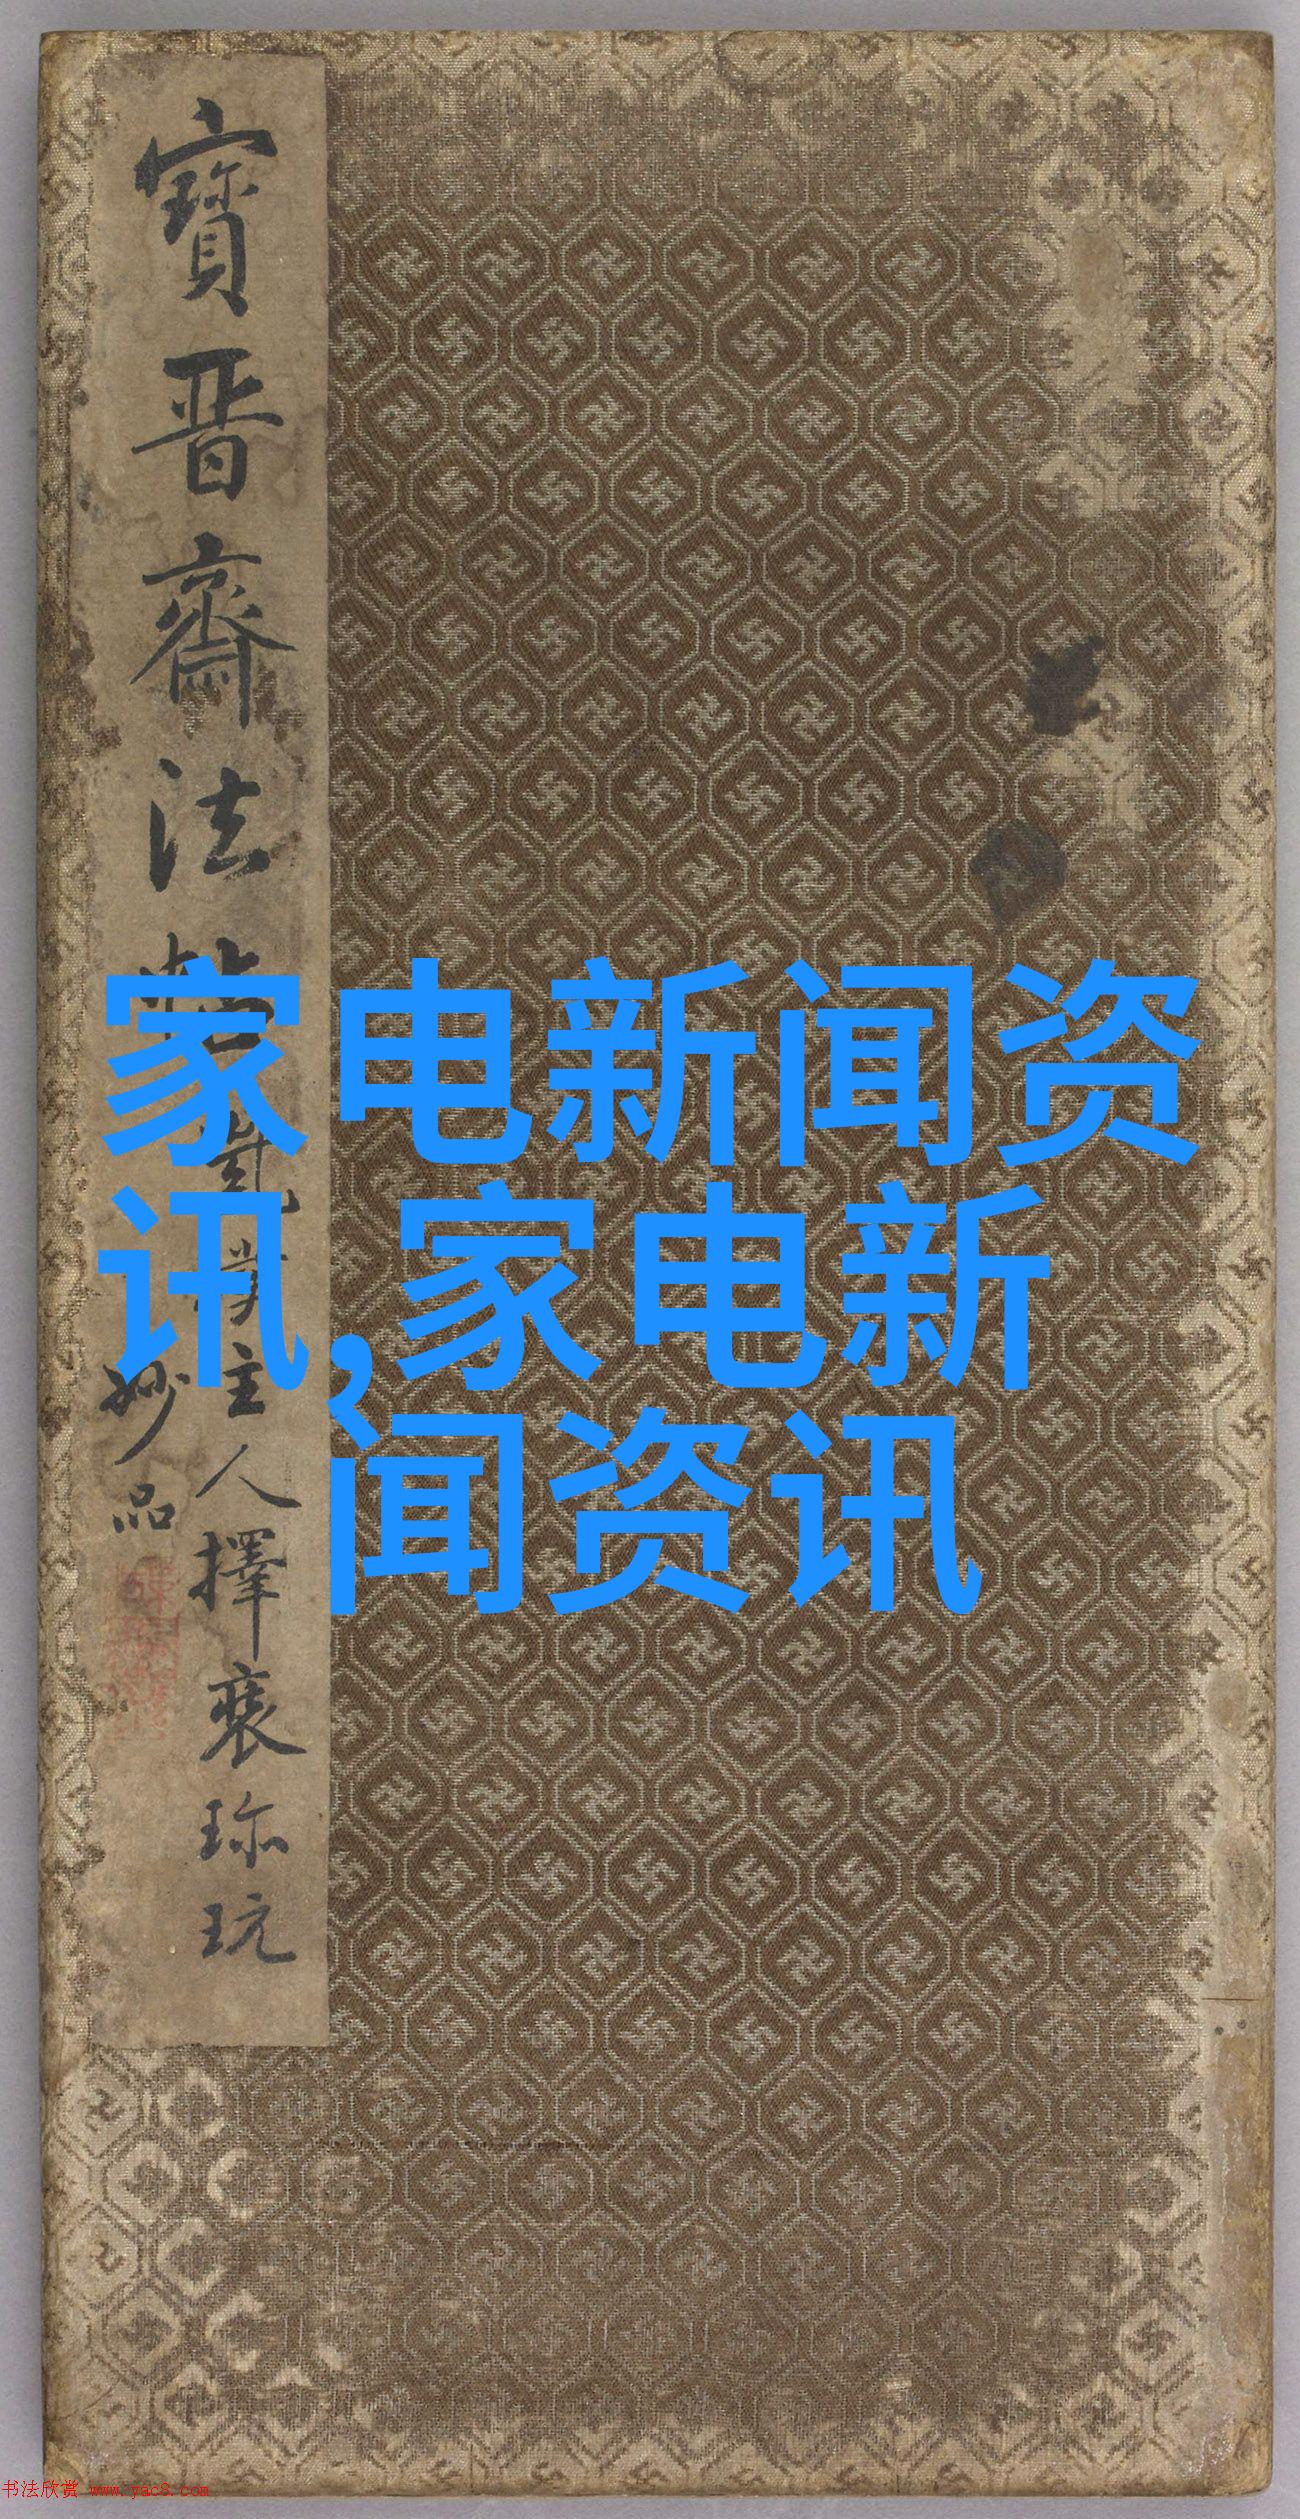 寶晋齋法帖
主人擇裘珎玩
妙品
家电新闻资
讯,家电新
闻资讯
书法欣赏 www.yac8.com